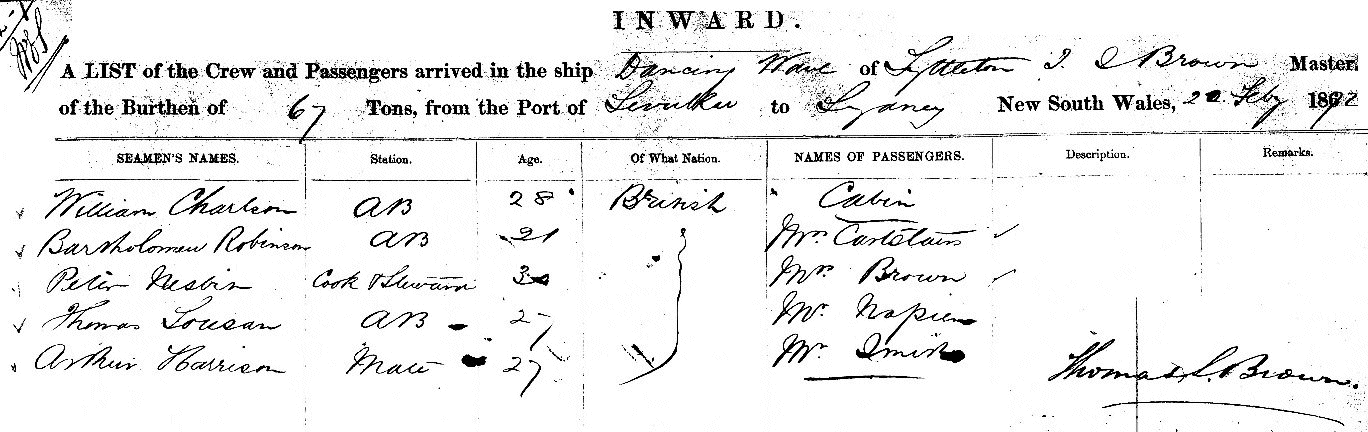 INWARD.
A LIST of the Crew and Passengers arrived in the ship Dancing Wave of Lyttleton T. S Brown Master.
of the Burthen of 67 Tons, from the Port of Levuka to Sydney New South Wales, 22 Feby 1872
SEAMEN'S NAMES. Station. Age. Of What Nation. NAMES OF PASSENGERS. Description. Remarks.
William Charlson AB 28 British Cabin
Bartholomew Robinson AB 21 Mrs Carstairs
Peter Nesbin Cook & Steward 30 Mrs Brown
Thomas AB 27 Mr. Napier
Arthur Harrison Mate 27 Mr Smith
Thomas S. Brown.